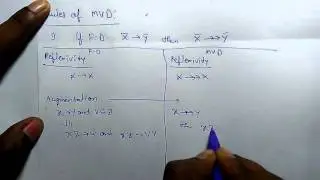 Rules of MVD:
1 If F.D X̄→Ȳ then X̄→→Ȳ
F.D MVD
Reflexivity Reflexivity
X→X X→→X
Augmentation
X→Y and X→→Y
then XZ
XZ→Y and XZ→YZ